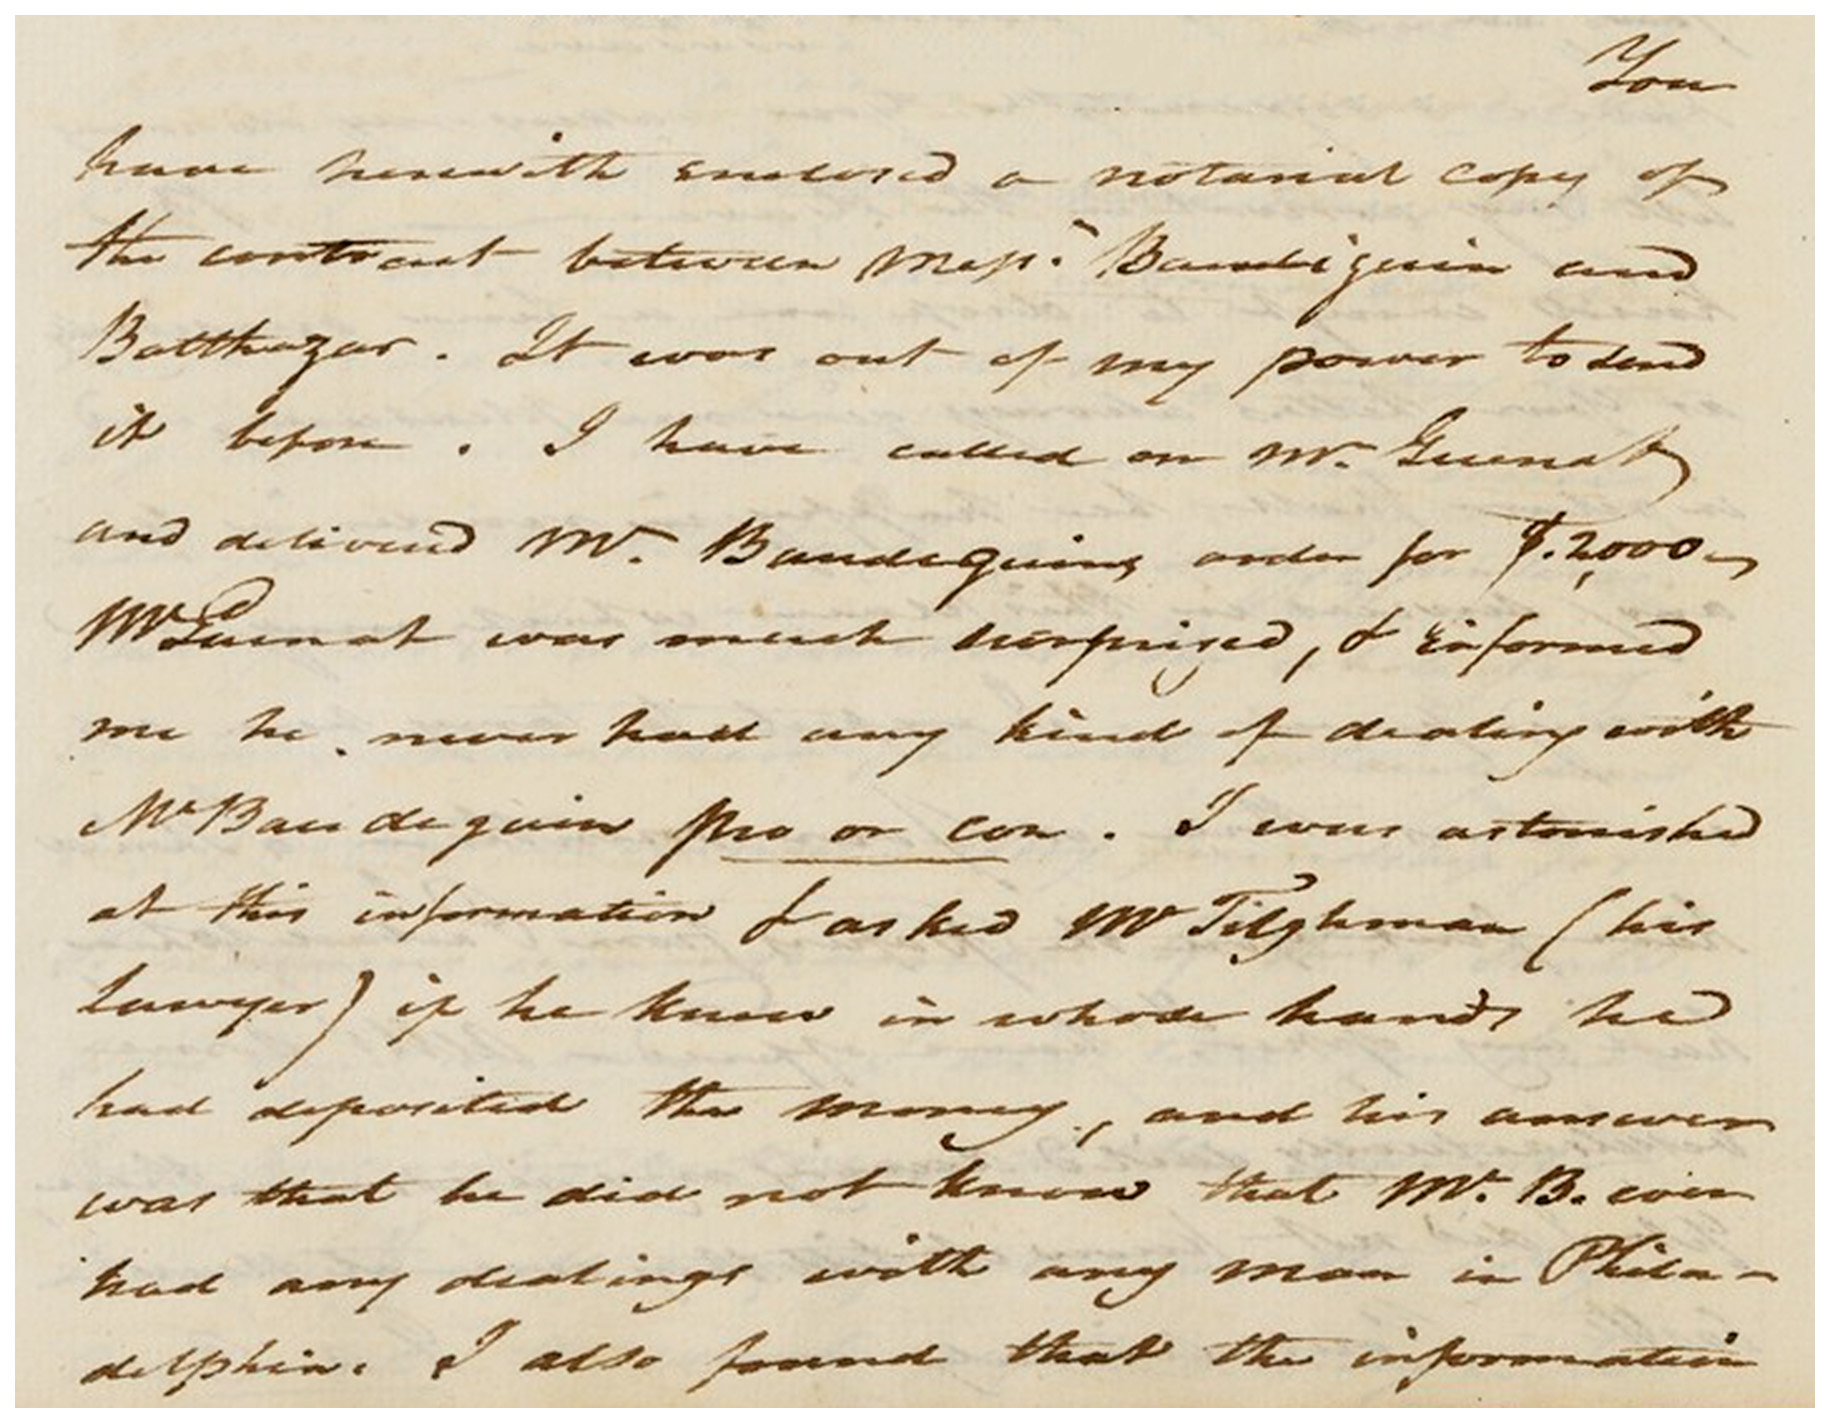 You
have herewith enclosed a notarial copy of
the contract between Messrs. Baudequin and
Batthazar. It was out of my power to send
it before. I have called on Mr. Guenat
and delivered Mr. Baudequins order for $.2,000 -
Mr Guenat was much surprised, & informed
me he never had any kind of dealing with
Mr Baudequin pro or con. I was astonished
at this information & asked Mr Tilghman (his
lawyer) if he knew in whose hands he
had deposited the money, and his answer
was that he did not know that Mr. B. ever
had any dealings with any man in Phila-
delphia. I also found that the information